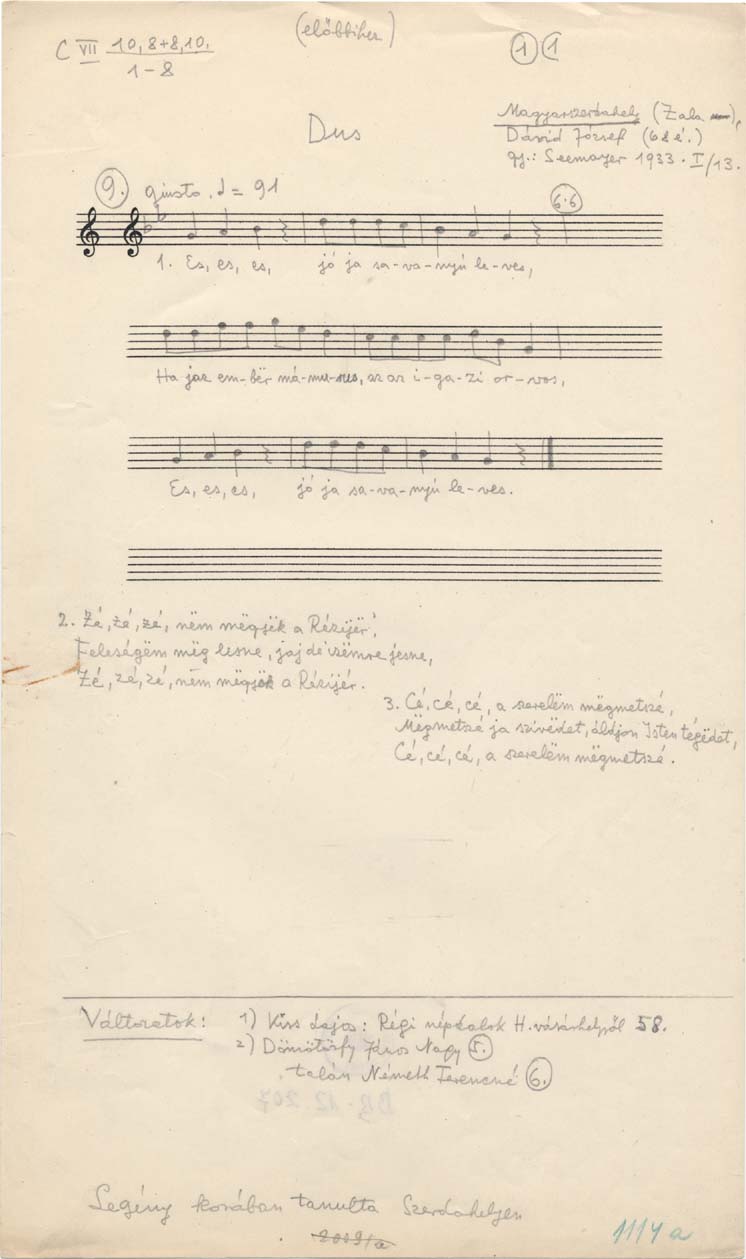 (előbbihez)
C VII 10, 8+8, 10.
1-8
1 (1
Magyarszerdahely (Zala),
Dávid József (68 é.)
gy.: Seemayer 1933. I/13.
Dus
9. giusto, = 91
6·6
1. Es, es, es, jó ja sa-va-nyú le-ves,
Ha jaz em-bër má-mu-ros, az az i-ga-zi or-vos,
Es, es, es, jó ja sa-va-nyú le-ves.
2. Zé, zé, zé, nëm mëgjëk a Rézijér',
Feleségëm mëg lesne, jaj de szëmre jesne,
Zé, zé, zé, nëm mëgjëk a Rézijér.
3. Cé, cé, cé, a szerelëm mëgmetszé,
Mëgmetszé ja szívëdet, áldjon Isten tégëdet,
Cé, cé, cé, a szerelëm mëgmetszé.
Változatok: 1) Kiss Lajos: Régi népdalok H.vásárhelyről 58.
2) Dömötörfy János Nagy 5.
talán Németh Ferencné 6.
Legény korában tanulta Szerdahelyen
2009/a
1114 a